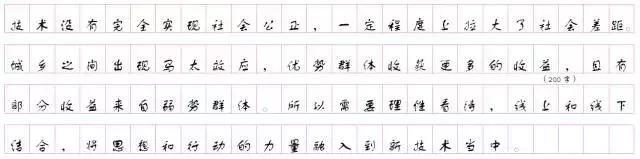 技术没有完全实现社会公正，一定程度上拉大了社会差距。
城乡之间出现马太效应，优势群体收获更多的收益，且有
(200字)
部分收益来自弱势群体。所以需要理性看待，线上和线下
结合，将思想和行动的力量融入到新技术当中。